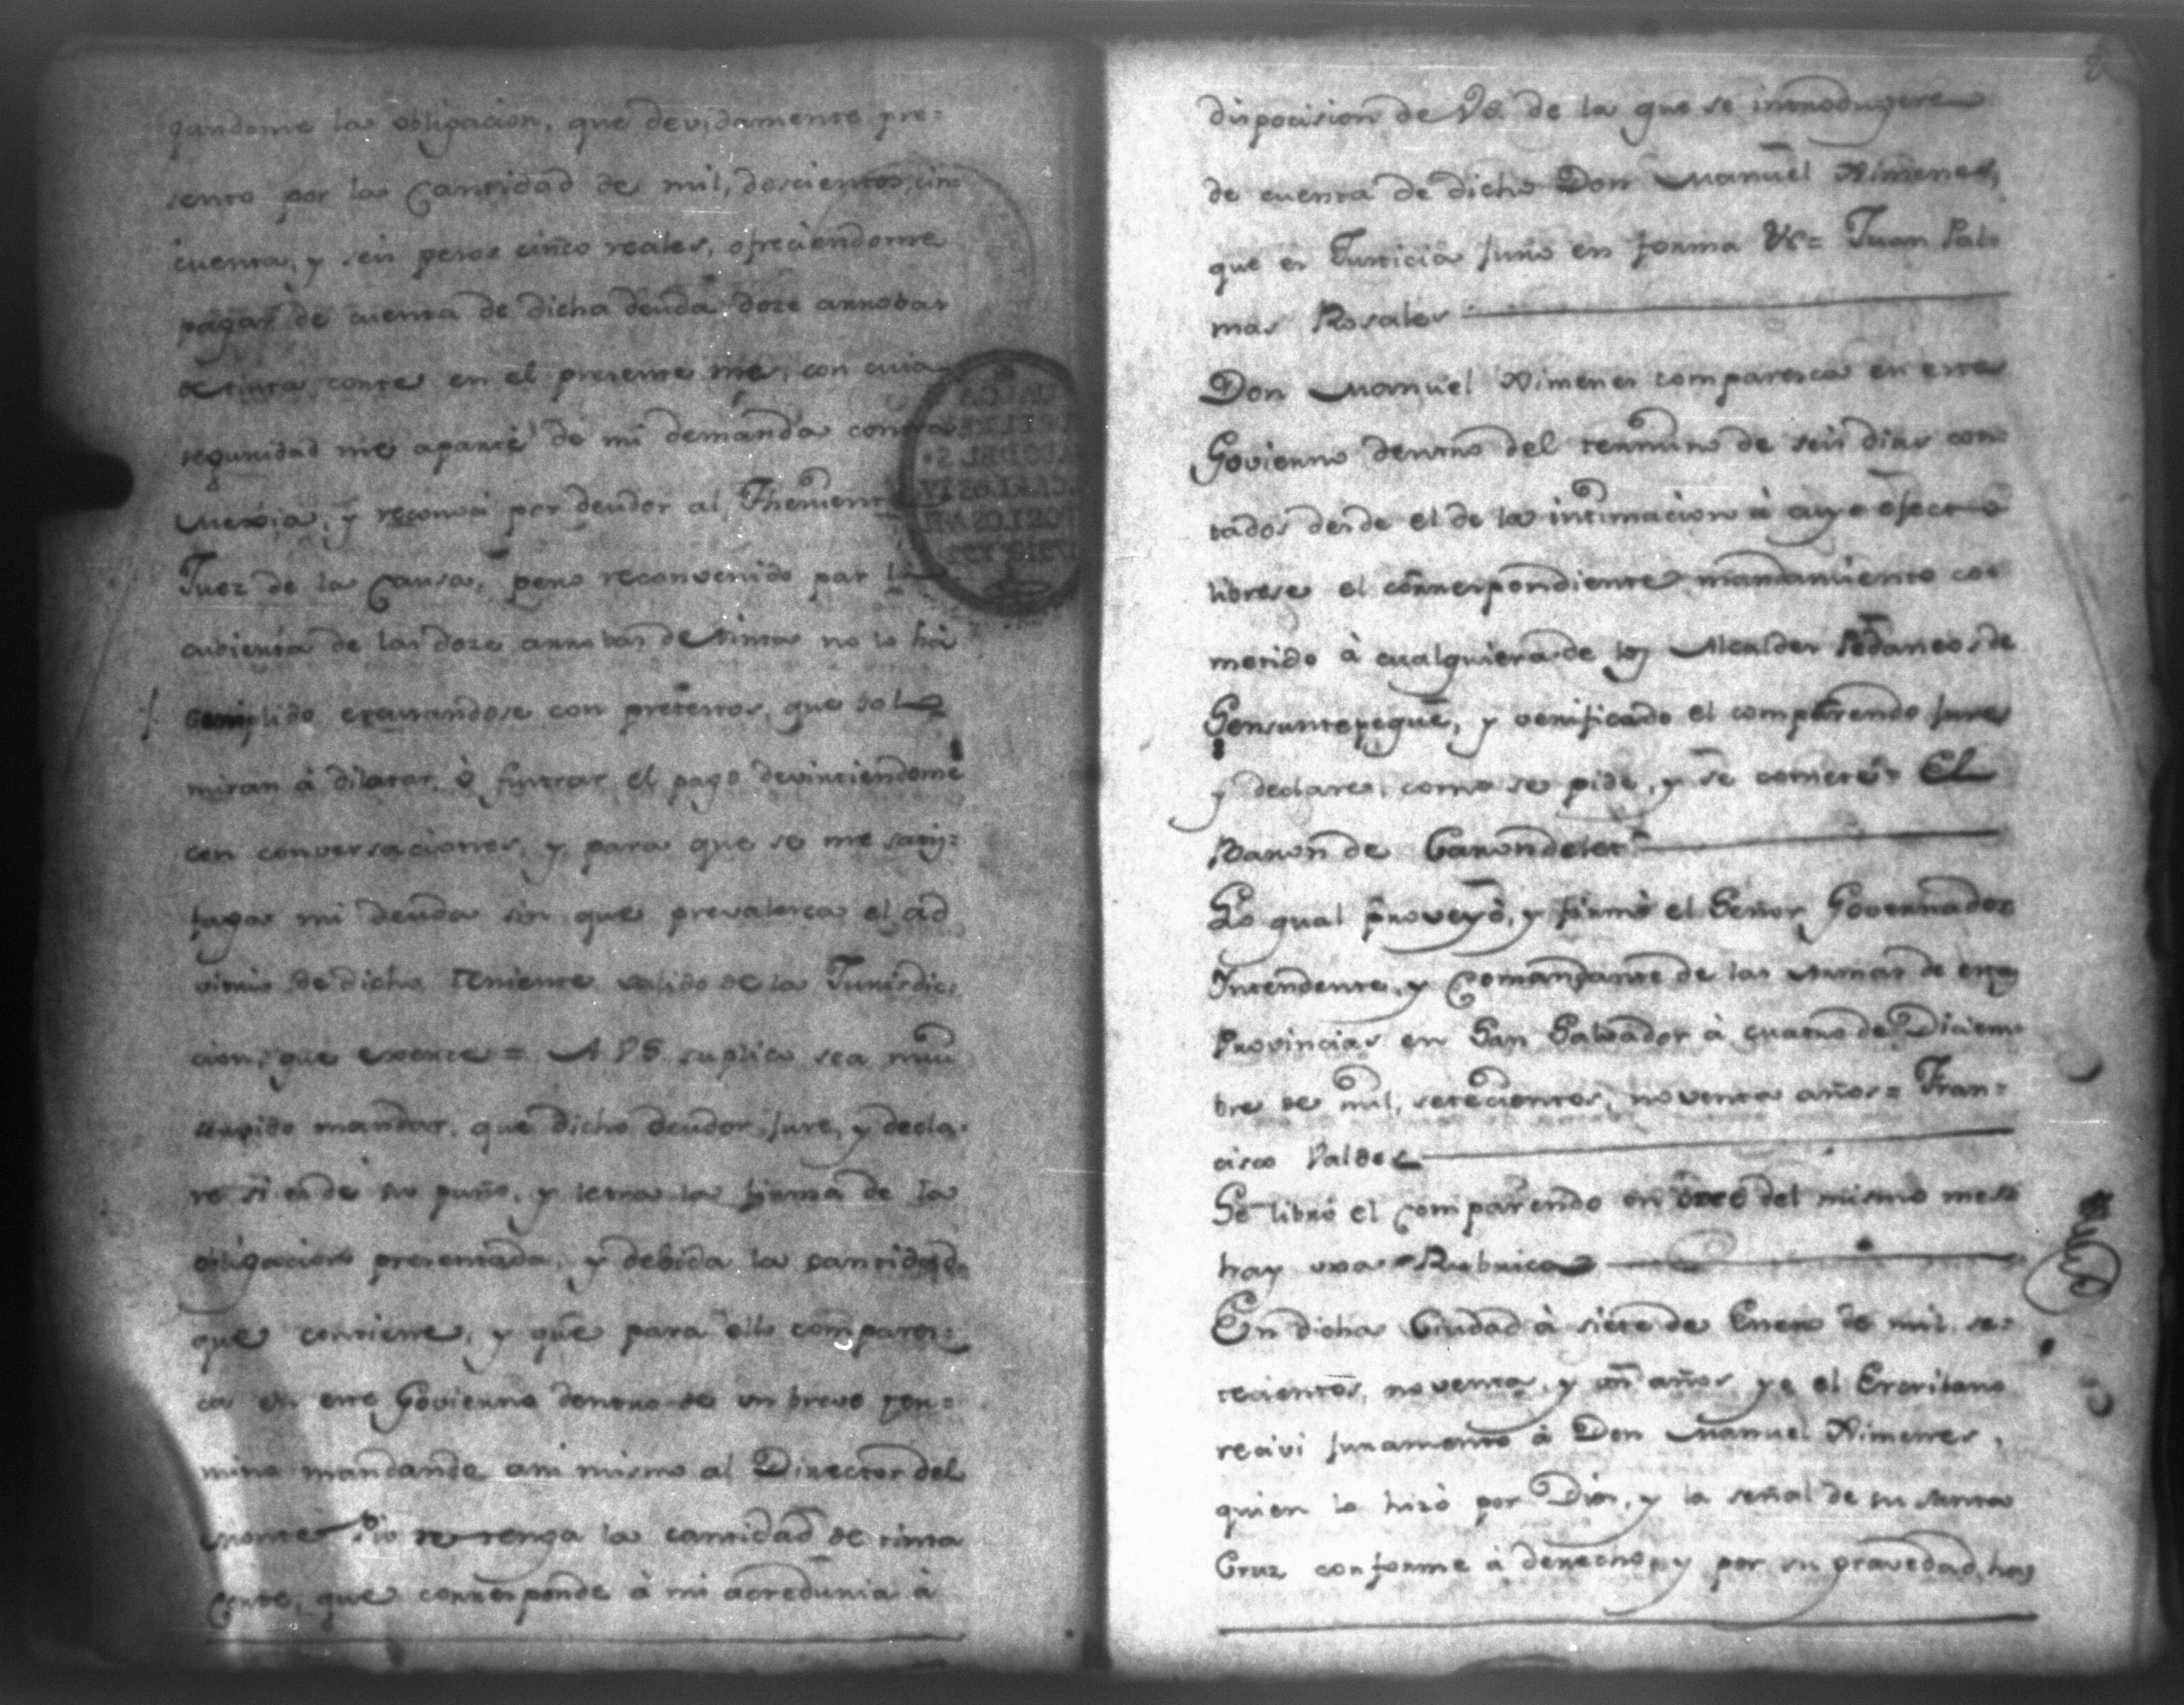 gandome la obligacion, que devidamente pre=
sento por la Cantidad de mil, doscientos, cin=
cuenta, y seis pesos cinco reales, ofreciendome
pagar de cuenta de dicha deuda doze arrobas
de tinta corte en el presente mes, con cuia
seguridad me aparté de mi demanda contra
y reconvi por deudor al Theniente
Juez de la Causa, pero reconvenido por la
cubierta de las doze arrobas de tinta no lo há
cumplido escusandose con pretextos, que solo
miran à dilatar, ò frustrar el pago
con conversaciones, y para que se me satis=
faga mi deuda sin que prevalesca el ad
vitrio de dicho Teniente valido de la Jurisdic=
cion, que exerce = A VS. suplico sea mui
servido mandar, que dicho deudor, jure, y decla=
re si es de su puño, y letra la firma de la
obligacion presentada, y debida la cantidad
que contiene, y que para ello compares=
ca en este Govierno dentro de un breve ter=
mino mandando asi mismo al Director del
Monte Pio retenga la cantidad de tinta
Corte, que corresponde à mi acredunia à
disposicion de VS. de la que se introdugere
de cuenta de dicho Don Manuel Ximenes,
que es Justicia juro en forma &c= Juan Pal=
mas Rosales
Don Manuel Ximenes comparesca en este
Govierno dentro del termino de seis dias con=
tados desde el de la intimacion à cuyo efecto
librese el correspondiente mandamiento co=
metido à cualquiera de los Alcaldes Pedaneos de
Sensuntepeque, y verificado el comparendo jure
y declare, como se pide, y se comete= El
Baron de Carondelet
Lo qual proveyò, y firmò el Señor Governador
Intendente, y Comandante de las Armas de estas
Provincias en San Salvador à cuatro de Diciem=
bre de mil, setecientos, noventa años= Fran=
cisco Valdes
Se librò el comparendo en once del mismo mes
hay una Rubrica
En dicha Ciudad à siete de Enero de mil se=
tecientos, noventa, y un años yo el Escribano
recivi juramento à Don Manuel Ximenes,
quien lo hizò por Dios, y la señal de su santa
Cruz conforme à derecho, y por su gravedad,